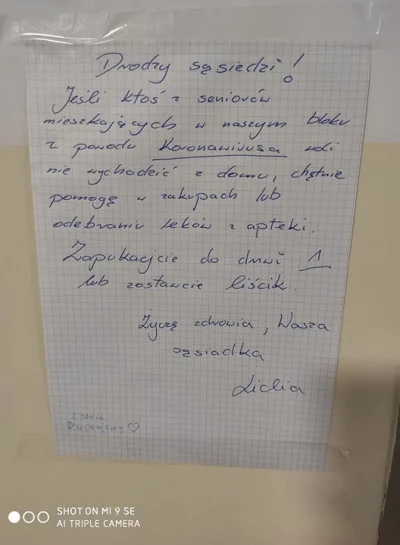 Drodzy sąsiedzi!
Jeśli ktoś z seniorów
mieszkających w naszym bloku
z powodu Koronawirusa woli
nie wychodzić z domu, chętnie
pomogę w zakupach lub
odebraniu leków z apteki.
Zapukajcie do drzwi 1
lub zostawcie liścik.
Życzę zdrowia, Wasza
sąsiadka
Lidia
SHOT ON MI 9 SE
AI TRIPLE CAMERA